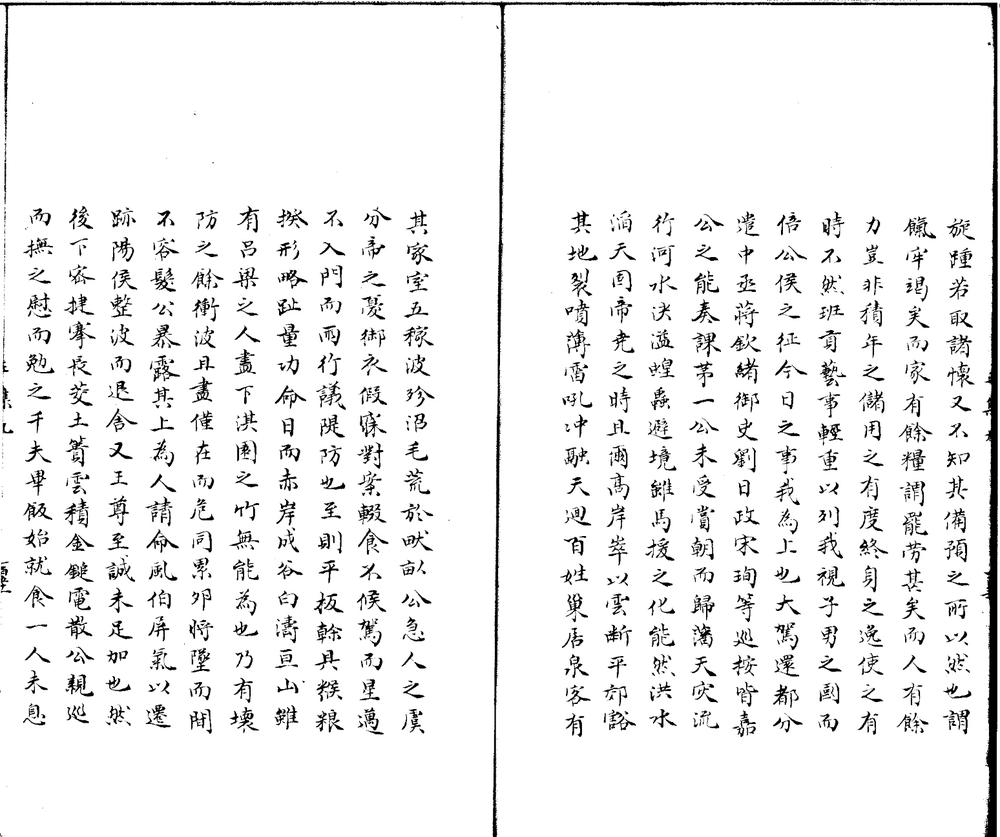 旋踵若取諸懷又不知其備預之所以然也謂
餼牢竭矣而家有餘糧謂罷勞甚矣而人有餘
力豈非積年之儲用之有度終身之逸使之有
時不然班貢藝事輕重以列我視子男之國而
倍公侯之征今日之事我為上也大駕還都分
遣中丞蔣欽緒御史劉日政宋珣等巡按皆嘉
公之能奏課苐一公未受賞朝而歸藩天灾流
行河水決溢蝗蟲避境雖馬援之化能然洪水
滔天固帝尭之時且爾髙岸崒以雲斷平郊豁
其地裂噴薄雷吼沖融天迴百姓巢居泉客有
其家室五稼波殄沼毛荒於畎畝公急人之虞
分帝之憂御衣假寐對案輟食不候駕而星邁
不入門而雨行議隄防也至則平板榦具糇粮
揆形略趾量功命日而赤岸成谷白濤亘山雖
有吕梁之人盡下淇園之竹無能為也乃有壞
防之餘衝波且盡僅在而危同累夘將墜而間
不容髮公暴露其上為人請命風伯屏氣以遷
跡陽侯整波而退舍又王尊至誠未足加也然
後下宻揵搴長茭土簣雲積金鎚電散公親巡
而撫之慰而勉之千夫畢飯始就食一人未息